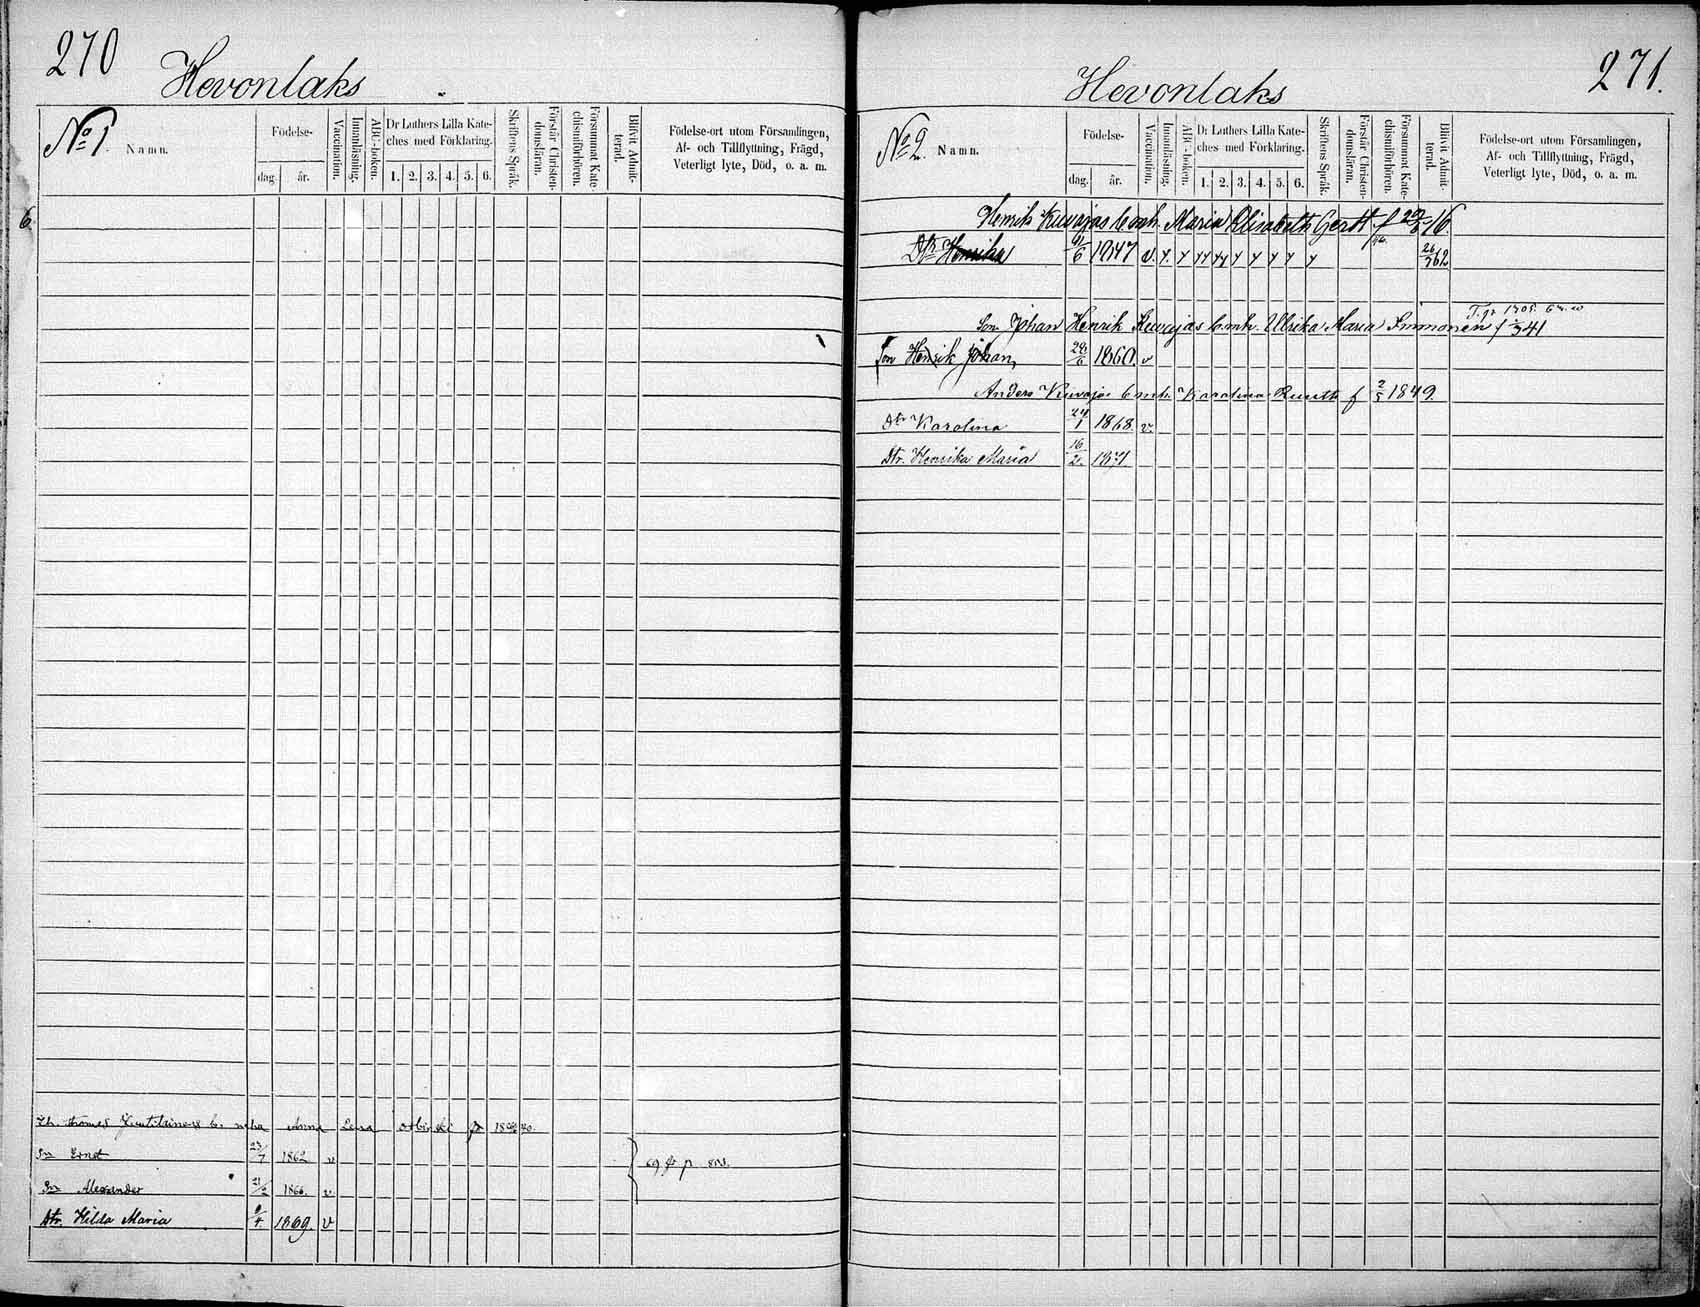 270
Hevonlaks
No 1.
Namn.
Födelse-
dag.
år.
Vaccination.
Innanläsning.
ABC-boken.
Dr Luthers Lilla Kate-
ches med Förklaring.
1. 2. 3. 4. 5. 6.
Skriftens Språk.
Förstår Christen-
domsläran.
Försummat Kate-
chismiförhören.
Blifvit Admit-
terad.
Födelse-ort utom Församlingen,
Af- och Tillflyttning, Frägd,
Veterligt lyte, Död, o. a. m.
6.
Anna Lena
Sn Ernst 23/7 1862 v
Sn Alexander 21/2 1866. v.
Dtr. Hilda Maria 9/4. 1869. v
271.
Hevonlaks
No 2.
Namn.
Födelse-
dag.
år.
Vaccination.
Innanläsning.
ABC-boken.
Dr Luthers Lilla Kate-
ches med Förklaring.
1. 2. 3. 4. 5. 6.
Skriftens Språk.
Förstår Christen-
domsläran.
Försummat Kate-
chismiförhören.
Blifvit Admit-
terad.
Födelse-ort utom Församlingen,
Af- och Tillflyttning, Frägd,
Veterligt lyte, Död, o. a. m.
Henrik Kuvajas Maria Elisabeth Gerdt f 16.
Dtr Henrika 1847 v.
Son Johan Henrik Kuvajas Ulrika Maria Immonen f 41
Son Henrik Johan, 1860. v
Anders Kuvajas Karolina Ruuth f 2/5 1849.
Dtr Karolina 1868. v.
Dtr. Henrika Maria 16/2. 1871